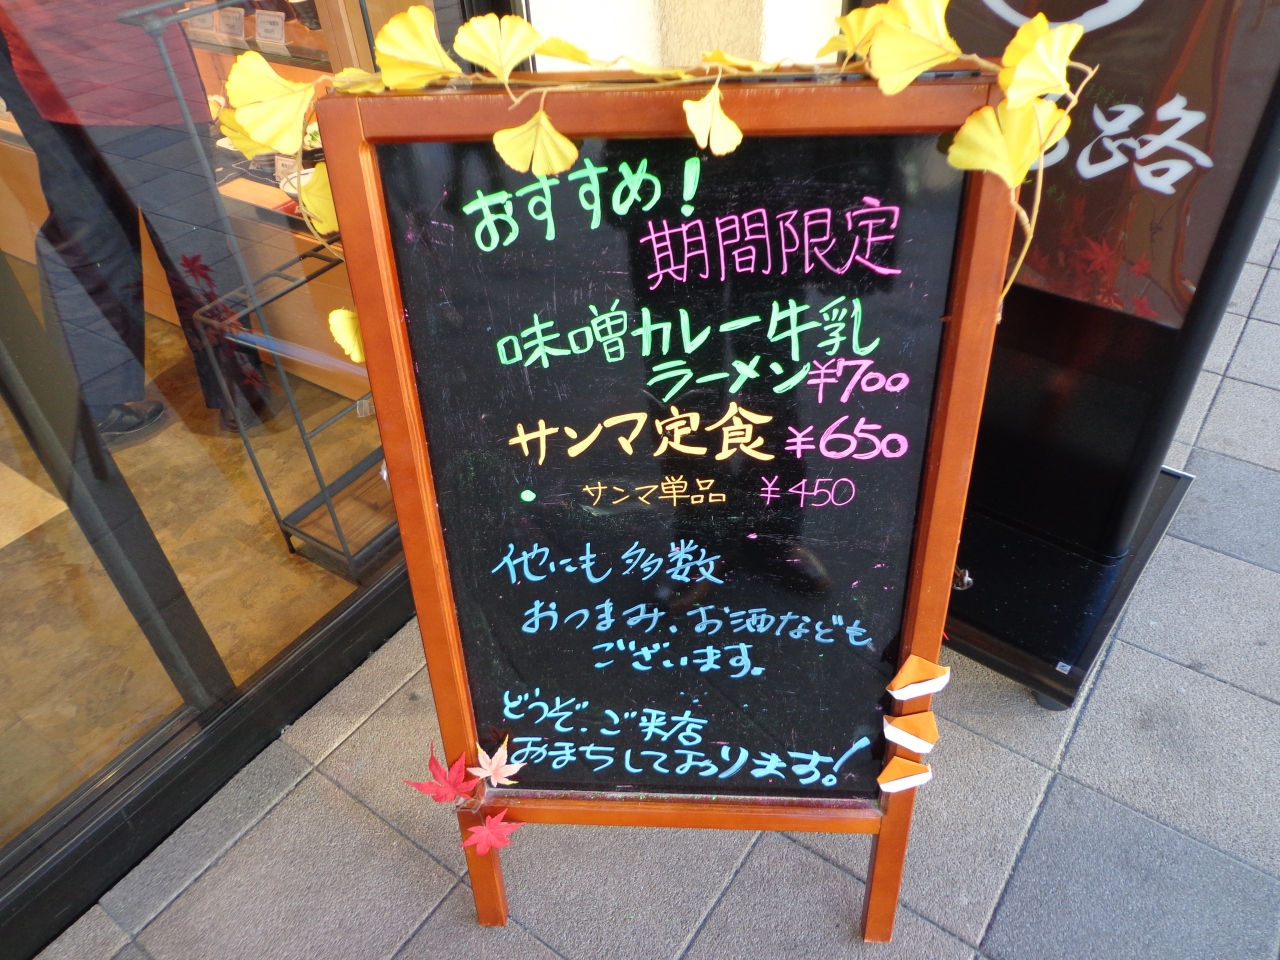 おすすめ!
期間限定
味噌カレー牛乳
ラーメン¥700
サンマ定食 ¥650
・ サンマ単品 ¥450
他にも多数
おつまみ、お酒なども
ございます。
どうぞ、ご来店
おまちしております!
路